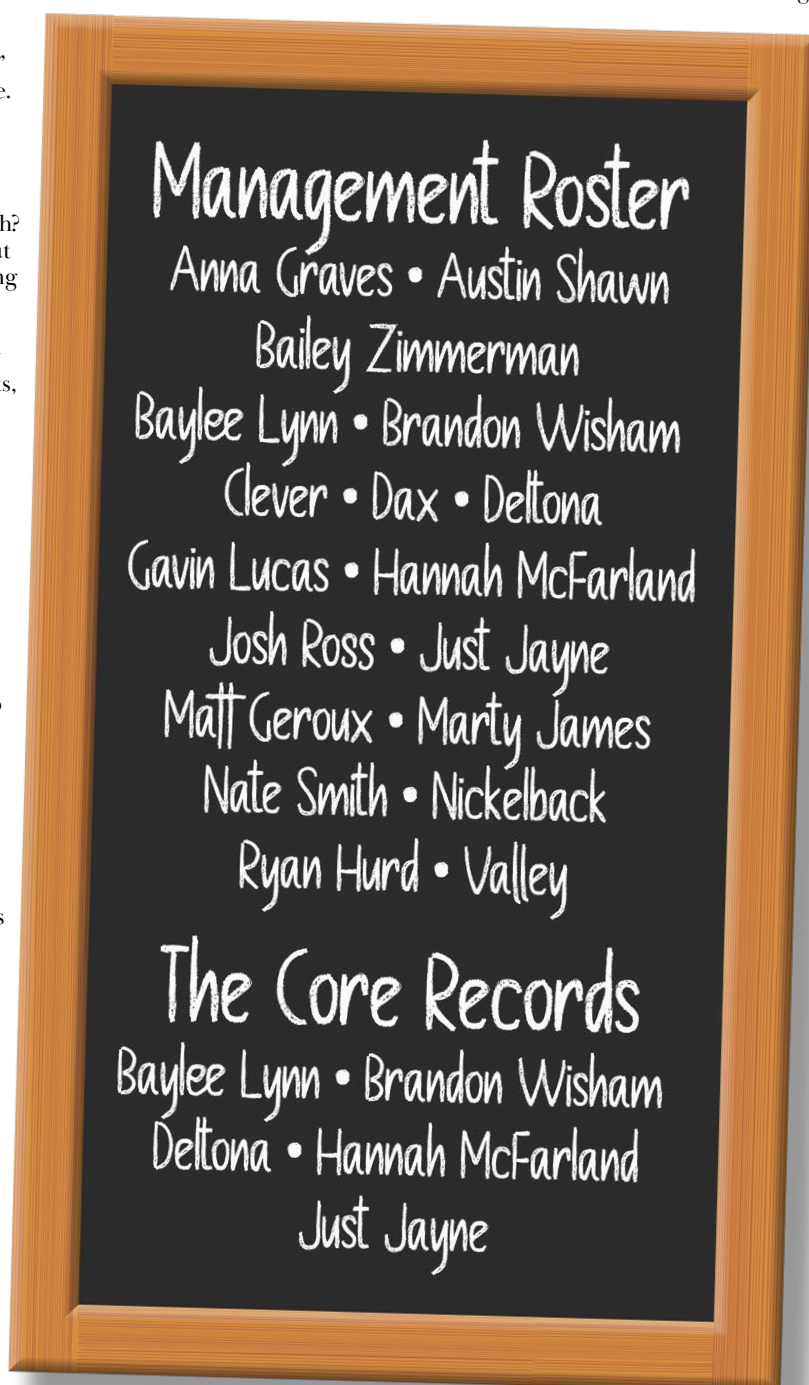 Management Roster
Anna Graves • Austin Shawn
Bailey Zimmerman
Baylee Lynn • Brandon Wisham
Clever • Dax • Deltona
Gavin Lucas • Hannah McFarland
Josh Ross • Just Jayne
Matt Geroux • Marty James
Nate Smith • Nickelback
Ryan Hurd • Valley
The Core Records
Baylee Lynn • Brandon Wisham
Deltona • Hannah McFarland
Just Jayne